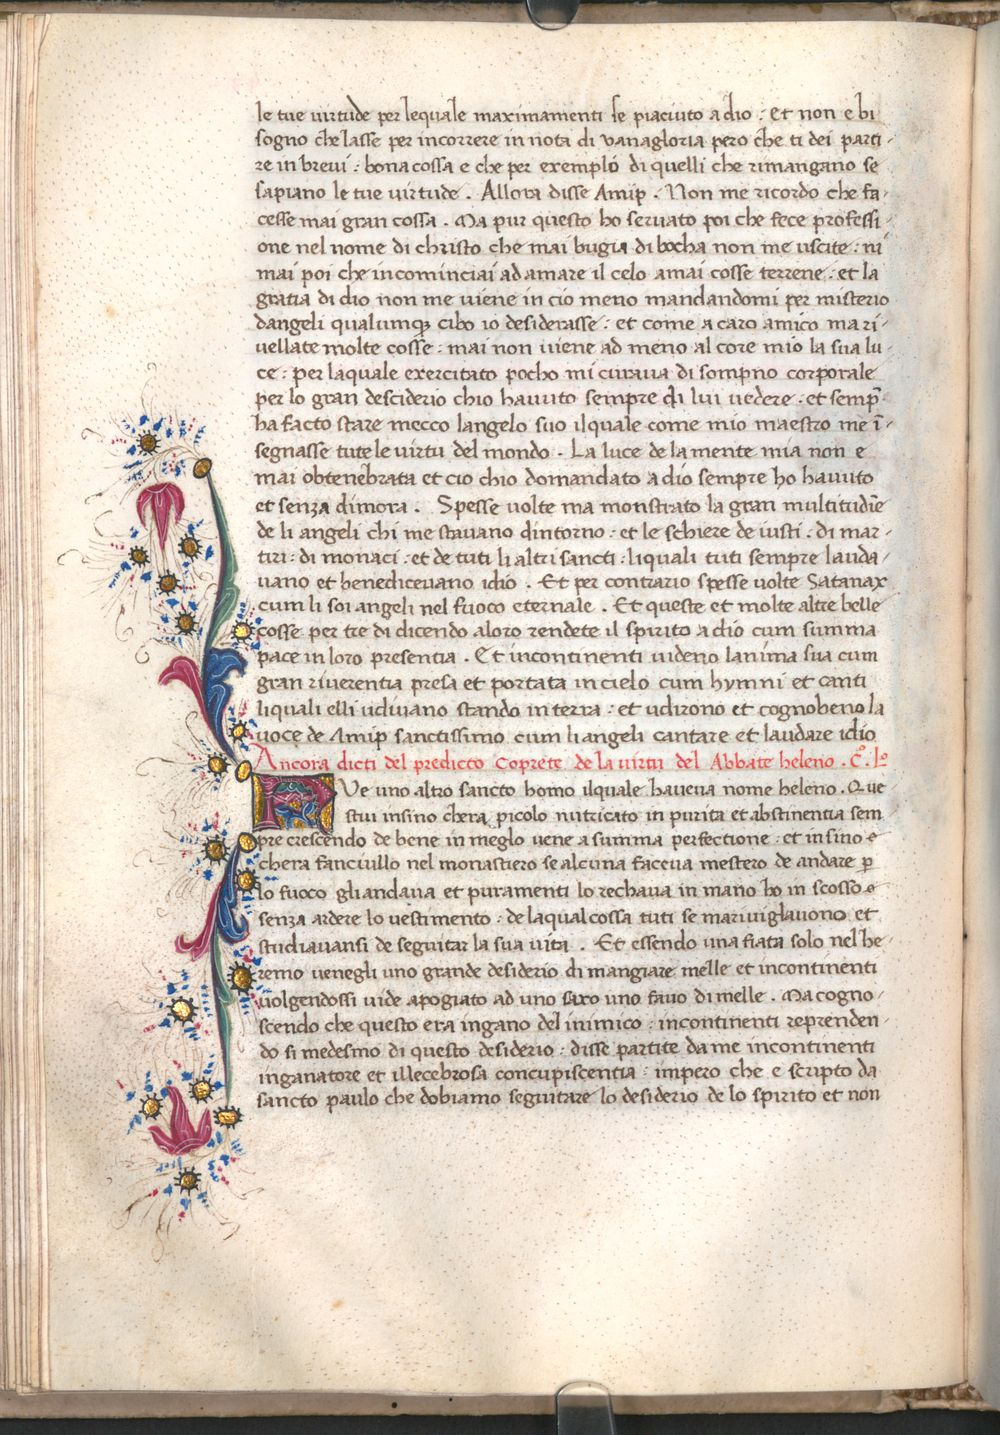 le tue uirtude per lequale maximamenti se piaciuto a dio : et non e bi
sogno che lasse per incorrere in nota di uanagloria pero che ti dei parti,
re in breui : bona cossa e che per exemplo di quelli che rimangano se
sapiano le tue uirtude . Allora disse Amip . Non me ricordo che fa,
cesse mai gran cossa . Ma pur questo ho seruato poi che fece professi,
one nel nome di christo che mai bugia di bocha non me uscite : ni
mai poi che incominciai ad amare il celo amai cosse terrene : et la
gratia di dio non me uiene in cio meno mandandomi per misterio
dangeli qualumqꝫ cibo io desiderasse : et come a caro amico ma ri,
uellate molte cosse : mai non uiene ad meno al core mio la sua lu,
ce : per laquale exercitato pocho mi curaua di sompno corporale
per lo gran desciderio chio hauuto sempre di lui uedere : et semp̄
ha facto stare mecco langelo suo ilquale come mio maestro me ī,
segnasse tute le uirtu del mondo . La luce de la mente mia non e
mai obtenebrata et cio chio domandato a dio sempre ho hauuto
et senza dimora . Spesse uolte ma monstrato la gran multitudīe
de li angeli chi me stauano dintorno : et le schiere de iusti : di mar,
tiri : di monaci : et de tuti li altri sancti : liquali tuti sempre lauda,
uano et benediceuano idio . Et per contrario spesse uolte Satanax
cum li soi angeli nel fuoco eternale . Et queste et molte altre belle
cosse per tre di dicendo a loro rendete il spirito a dio cum summa
pace in loro presentia . Et incontinenti uideno lanima sua cum
gran riuerentia presa et portata in cielo cum hymni et canti
liquali elli udiuano stando in terra : et udirono et cognobeno la
uoce de Amip sanctissimo cum li angeli cantare et laudare idio
Ancora dicti del predicto Coprete de la uirtu del Abbate heleno . C°. l°
Ue uno altro sancto homo ilquale haueua nome heleno . Que
stui insino chera picolo nutricato in purita et abstinentia sem
pre crescendo de bene in meglo uene a summa perfectione : et insino
chera fanciullo nel monastiero se alcuna faceua mestero de andare ꝑ
lo fuoco gli andaua et puramenti lo rechaua in mano ho in scosso
senza ardere lo uestimento : de laqual cossa tuti se mariuiglauono et
studiauansi de seguitar la sua uita . Et essendo una fiata solo nel he,
remo uenegli uno grande desiderio di mangiare melle et incontinenti
uolgendossi uide apogiato ad uno saxo uno fauo di melle . Ma cogno,
scendo che questo era ingano del inimico : incontinenti reprenden,
do si medesmo di questo desiderio : disse partite da me incontinenti
inganatore et illecebrosa concupiscentia : impero che e scripto da
sancto paulo che dobiamo seguitare lo desiderio de lo spirito et non